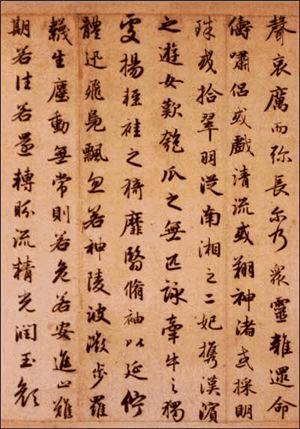 聲哀厲而弥長尔乃衆靈雜遝命
儔嘯侶或戲清流或翔神渚或採明
珠或拾翠羽從南湘之二妃攜漢濱
之遊女歎匏瓜之無匹詠牽牛之獨
處揚輕袿之猗靡翳脩袖以延佇
體迅飛鳧飄忽若神陵波微步羅
韈生塵動無常則若危若安進止難
期若往若還轉眄流精光潤玉顏